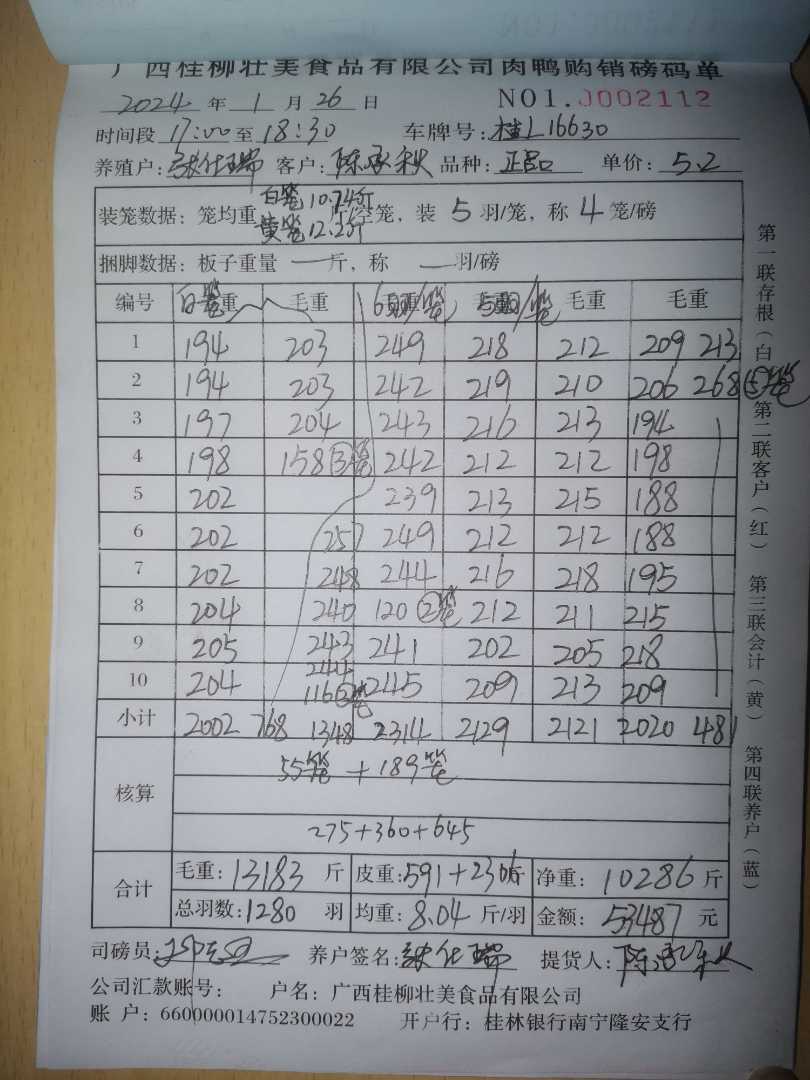 广西桂柳壮美食品有限公司肉鸭购销磅码单
2024 年 1 月 26 日 NO1. J002112
时间段 17:00 至 18:30 车牌号: 桂L16630
养殖户: 客户: 陈承秋 品种: 正品 单价: 5.2
白笼 10.74斤
装笼数据: 笼均重 斤/空笼, 装 5 羽/笼, 称 4 笼/磅
黄笼 12.2斤
捆脚数据: 板子重量 一 斤, 称 一 羽/磅
编号 白笼 毛重 6羽/笼 5羽/笼 毛重 毛重
1 194 203 249 218 212 209 213
2 194 203 242 219 210 206 268 ⑤笼
3 197 204 243 216 213 194
4 198 158 ③笼 242 212 212 198
5 202 239 213 215 188
6 202 257 249 212 212 188
7 202 248 244 216 218 195
8 204 240 120 ②笼 212 211 215
9 205 243 241 202 205 218
10 204 244 116 ②笼 245 209 213 209
小计 2002 768 1348 2314 2129 2121 2020 481
核算
55笼 + 189笼
275+360+645
合计
毛重: 13183 斤 皮重: 591+2306 斤 净重: 10286 斤
总羽数: 1280 羽 均重: 8.04 斤/羽 金额: 53487 元
司磅员: 养户签名: 提货人: 陈承秋
公司汇款账号: 户名: 广西桂柳壮美食品有限公司
账 户: 660000014752300022 开户行: 桂林银行南宁隆安支行
第一联存根(白) 第二联客户(红) 第三联会计(黄) 第四联养户(蓝)